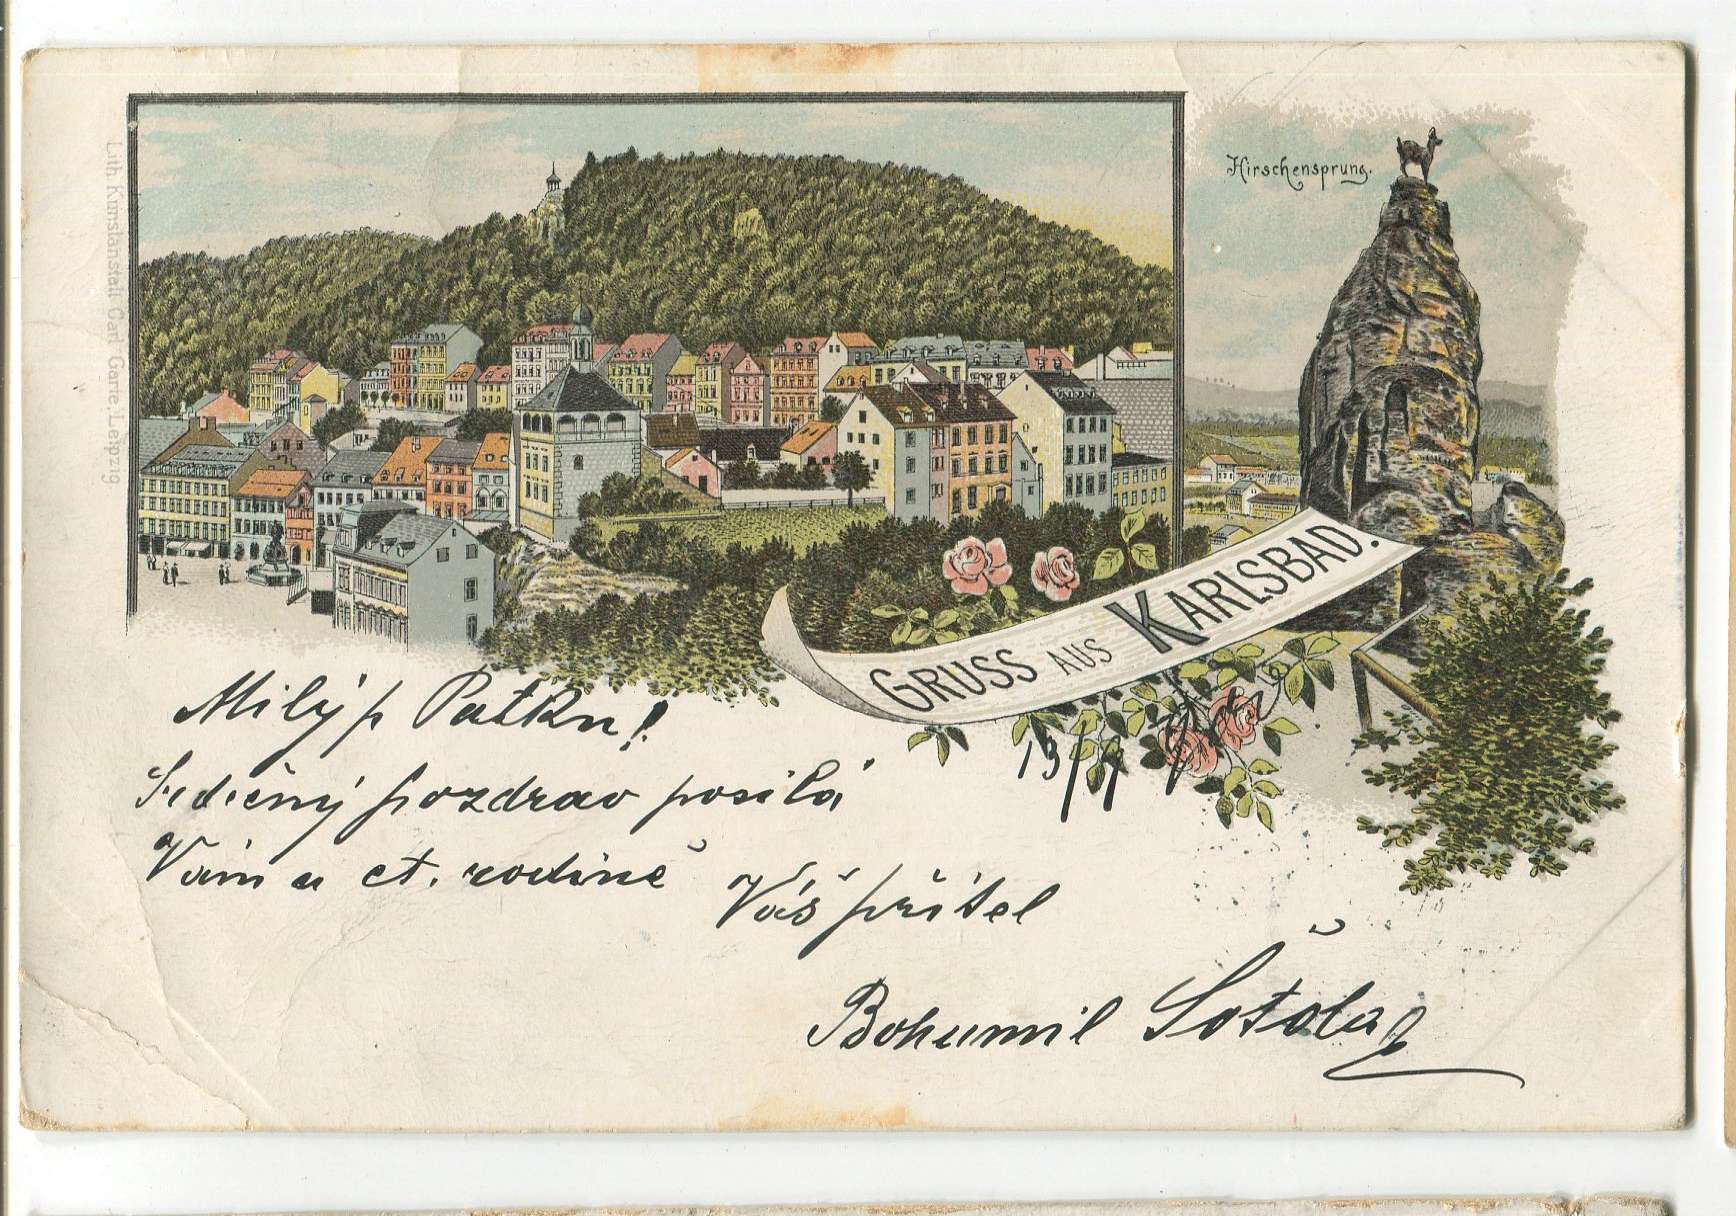 Lith. Kunstanstalt Carl Garte, Leipzig
Hirschensprung.
GRUSS AUS KARLSBAD.
Milý p Patku!
13/7
Srdečný pozdrav posílá
Vám a ct. rodině
Váš přítel
Bohumil